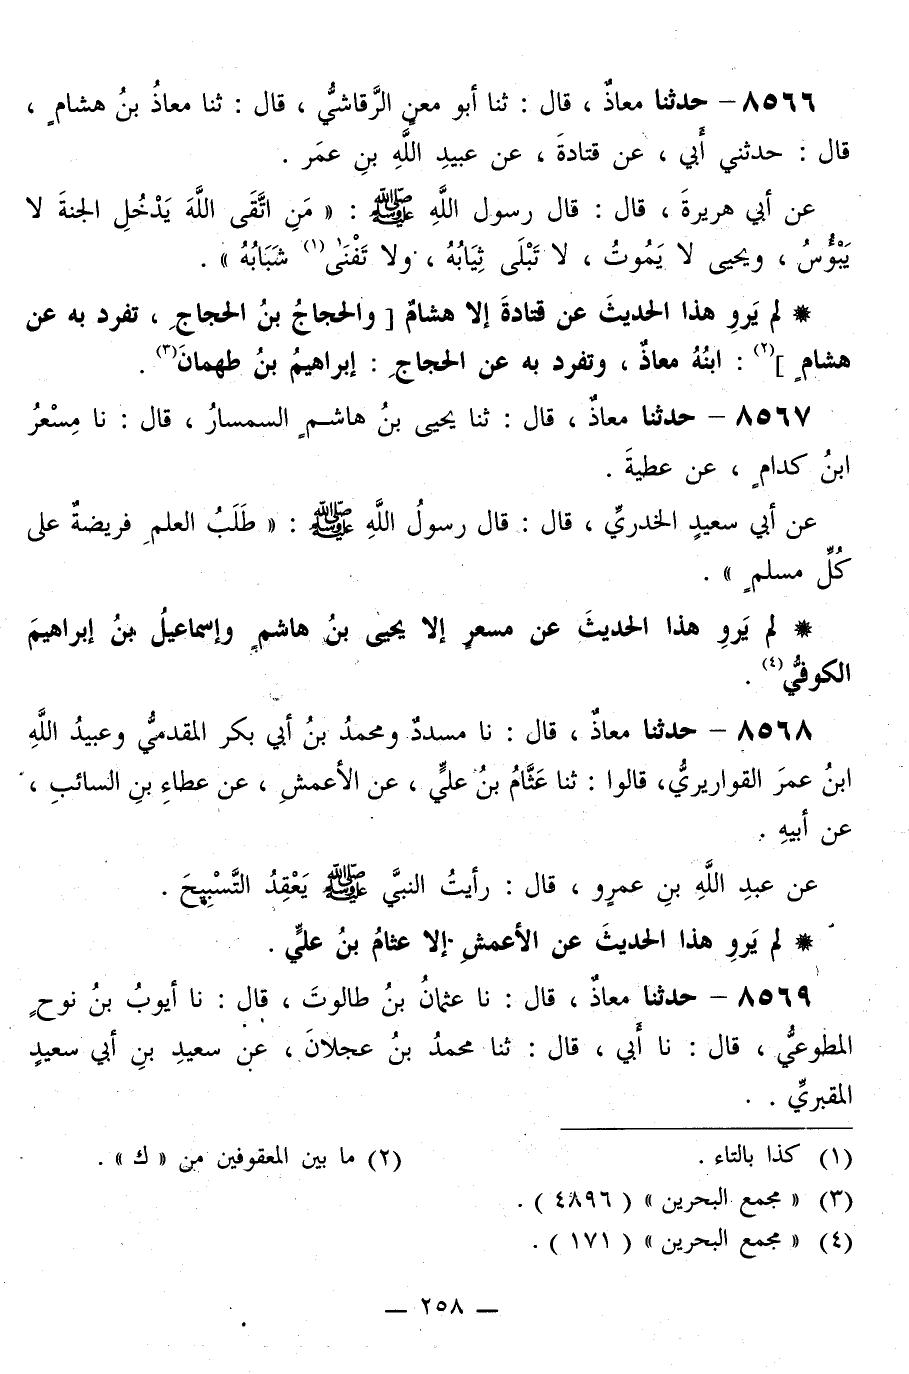 ٨٥٦٦ – حدثنا معاذٌ ، قال : ثنا أبو معنٍ الرَّقاشيُّ ، قال : ثنا معاذُ بنُ هشامٍ ،
قال : حدثني أَبي ، عن قتادةَ ، عن عبيدِ اللَّهِ بنِ عمَر .
عن أبي هريرةَ ، قال : قال رسول اللَّهِ ﷺ : « مَنِ اتَّقَى اللَّهَ يَدْخُلِ الجنةَ لا
يَبْؤُسُ ، ويحيى لا يَمُوتُ ، لا تَبْلَى ثِيَابُهُ ، ولا تَفْنَىٰ(١) شَبَابُهُ » .
* لم يَروِ هذا الحديثَ عن قتادةَ إلا هشامٌ [ والحجاجُ بنُ الحجاجِ ، تفرد به عن
هشامٍ ](٢) : ابنُهُ معاذٌ ، وتفرد به عن الحجاجِ : إبراهيمُ بنُ طهمانَ(٣) .
٨٥٦٧ – حدثنا معاذٌ ، قال : ثنا يحيى بنُ هاشمٍ السمسارُ ، قال : نا مِسْعَرُ
ابنُ كدامٍ ، عن عطيةَ .
عن أبي سعيدٍ الخدريِّ ، قال : قال رسولُ اللَّهِ ﷺ : « طَلَبُ العلمِ فريضةٌ على
كُلِّ مسلمٍ » .
* لم يَروِ هذا الحديثَ عن مسعرٍ إلا يحيى بنُ هاشمٍ وإسماعيلُ بنُ إبراهيمَ
الكوفيُّ(٤) .
٨٥٦٨ – حدثنا معاذٌ ، قال : نا مسددٌ ومحمدُ بنُ أبي بكر المقدميُّ وعبيدُ اللَّهِ
ابنُ عمرَ القواريريُّ، قالوا : ثنا عَثَّامُ بنُ عليٍّ ، عن الأعمشِ ، عن عطاءِ بنِ السائبِ ،
عن أبيهِ .
عن عبدِ اللَّهِ بنِ عمرٍو ، قال : رأيتُ النبيَّ ﷺ يَعْقِدُ التَّسْبِيحَ .
* لم يَروِ هذا الحديثَ عن الأعمشِ إلا عثامُ بنُ عليٍّ .
٨٥٦٩ – حدثنا معاذٌ ، قال : نا عثمانُ بنُ طالوتَ ، قال : نا أيوبُ بنُ نوحٍ
المطوعيُّ ، قال : نا أَبي ، قال : ثنا محمدُ بنُ عجلانَ ، عن سعيدِ بنِ أبي سعيدٍ
المقبريِّ .
(١) كذا بالتاء . (٢) ما بين المعقوفين من « ك » .
(٣) « مجمع البحرين » ( ٤٨٩٦ ) .
(٤) « مجمع البحرين » ( ١٧١ ) .
— ٢٥٨ —